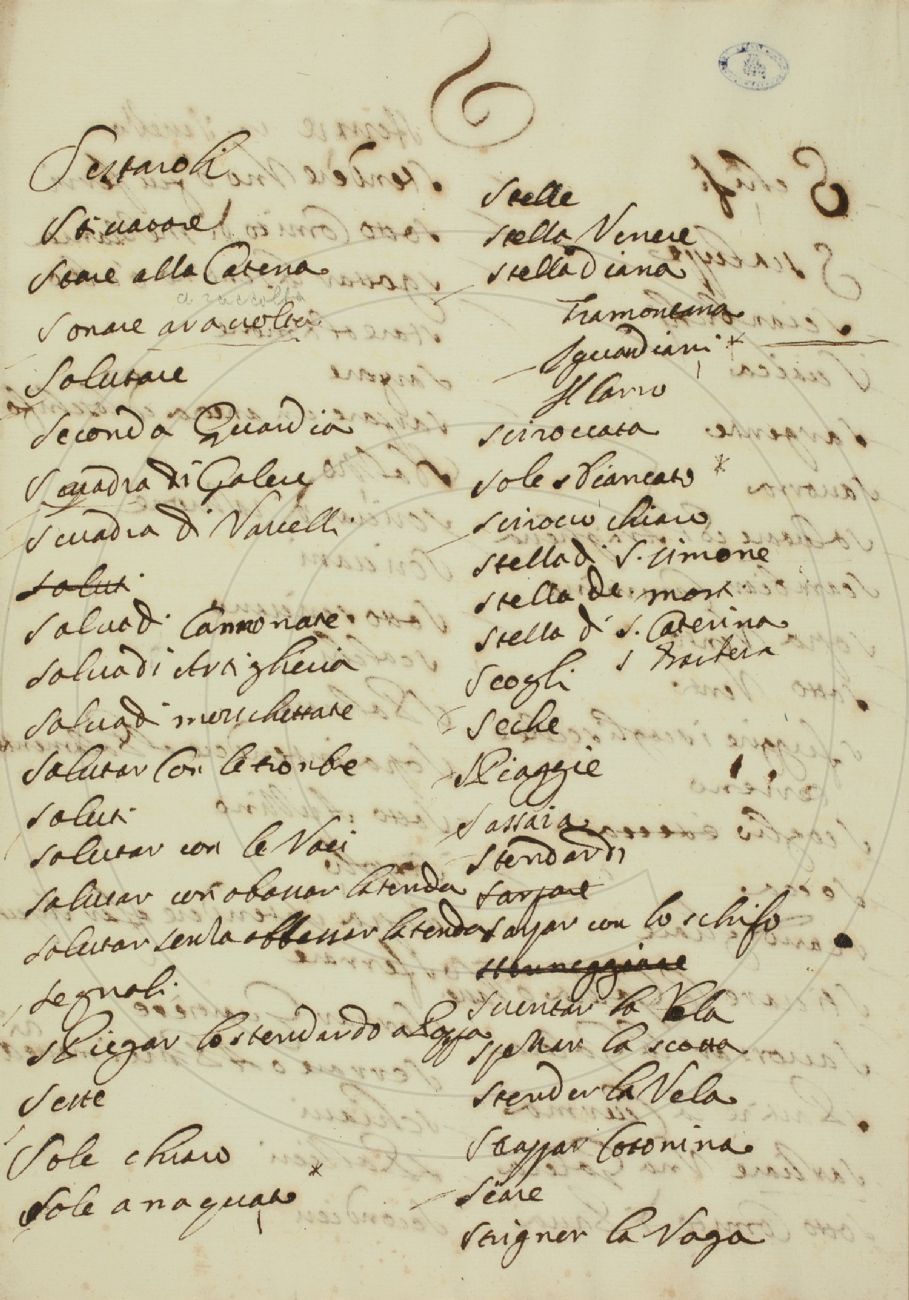 S
Sestaroli
Stivatore
Stare alla Catena
a raccolta
Sonare a raccolta
Salutare
Seconda Guardia
Squadra di Galere
Squadra di Vascelli
Saluti
Salva di Cannonate
Salva di Artiglieria
Salva di moschettate
Salutar con le trombe
Saluti
Salutar con le Voci
Salutar con abassar la tenda
Salutar senza abbassar la tenda
Segnali
Spiegar lo stendardo a Poppa
Sette
Sole chiaro
Sole anaquato *
Stelle
Stella Venere
Stella Diana
Tramontana
Sguardiani *
Il Carro
Sciroccata
Sole sbiancato *
Scirocco chiaro
Stella di S. Simone
Stella de mort
Stella di S. Caterina
Scogli
Seche
Spiaggie
Sassaia
Stendardi
Sarpare
Sarpar con lo schifo
Sventar la Vela
Spettar la scotta
Stender la Vela
Strappar Cotonina
Stringer la Voga